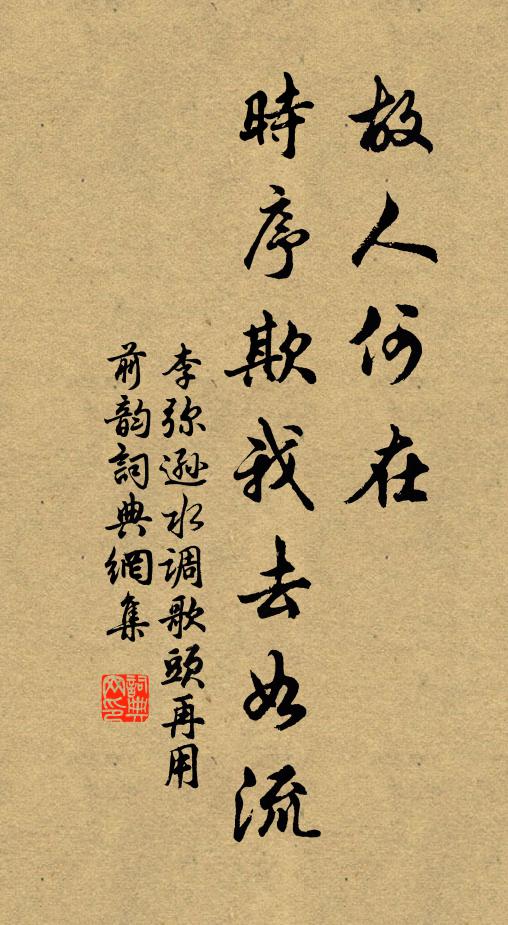 故人何在
時序欺我去如流
李弥遜水调歌頭再用
前韵詞典網集
詞典